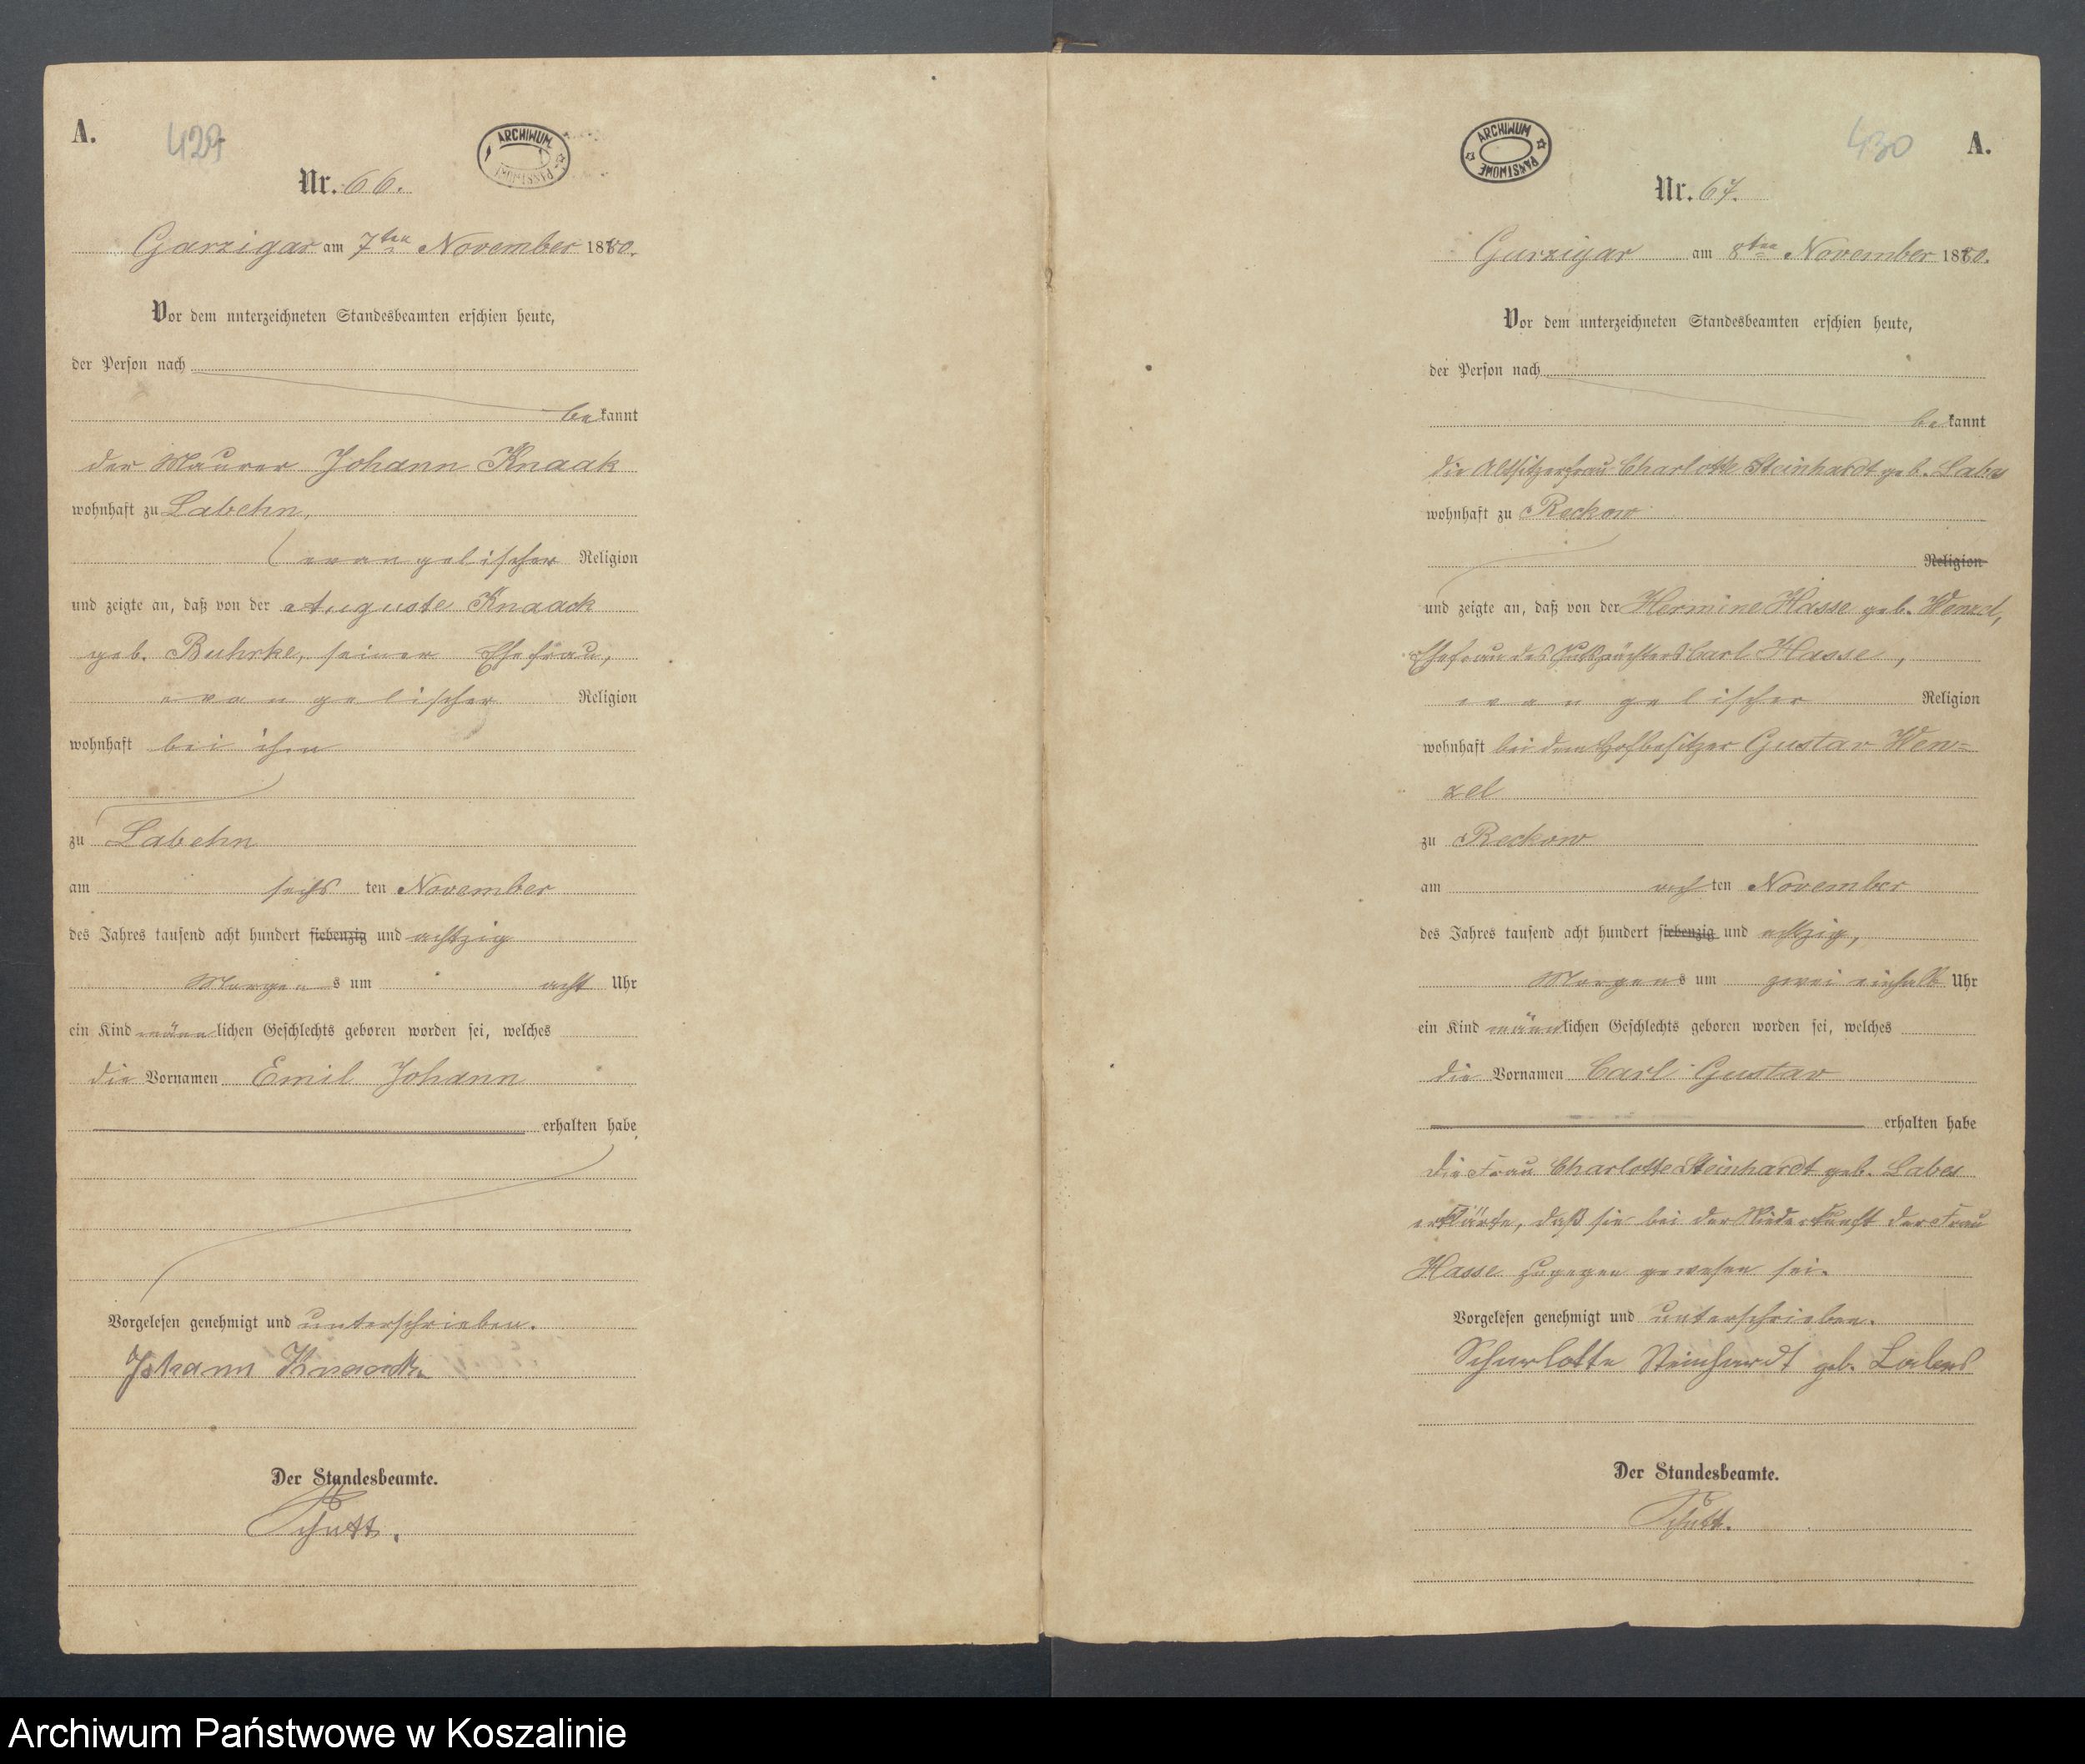 A.
429
ARCHIWUM PAŃSTWOWE
Nr. 66.
Garzigar am 7ten November 1880.
Vor dem unterzeichneten Standesbeamten erschien heute,
der Person nach
bekannt
der Maurer Johann Knaak
wohnhaft zu Labehn,
evangelischer Religion
und zeigte an, daß von der Auguste Knaack
geb. Buhrke, seiner Ehefrau,
evangelischer Religion
wohnhaft bei ihm
zu Labehn
am sechsten November
des Jahres tausend acht hundert siebenzig und achtzig
Morgens um acht Uhr
ein Kind männlichen Geschlechts geboren worden sei, welches
die Vornamen Emil Johann
erhalten habe
Vorgelesen genehmigt und unterschrieben.
Johann Knaack
Der Standesbeamte.
Schütt.
430
A.
ARCHIWUM PAŃSTWOWE
Nr. 67.
Garzigar am 8ten November 1880.
Vor dem unterzeichneten Standesbeamten erschien heute,
der Person nach
bekannt
die Altsitzerfrau Charlotte Steinhardt geb. Labes
wohnhaft zu Reckow
Religion
und zeigte an, daß von der Hermine Hasse geb. Wenzel,
Ehefrau des Gutspächters Carl Hasse,
evangelischer Religion
wohnhaft bei dem Hofbesitzer Gustav Wen=
zel
zu Reckow
am achten November
des Jahres tausend acht hundert siebenzig und achtzig,
Morgens um zwei einhalb Uhr
ein Kind männlichen Geschlechts geboren worden sei, welches
die Vornamen Carl Gustav
erhalten habe
Die Frau Charlotte Steinhardt geb. Labes
erklärte, daß sie bei der Niederkunft der Frau
Hasse zugegen gewesen sei.
Vorgelesen genehmigt und unterschrieben.
Scharlotte Steinhardt geb. Labes
Der Standesbeamte.
Schütt.
Archiwum Państwowe w Koszalinie